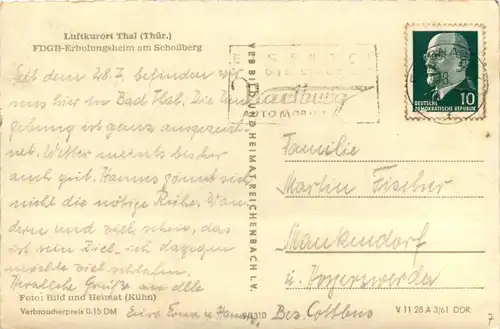 Luftkurort Thal (Thür.)
FDGB-Erholungsheim am Schoßberg
Seit dem 28.7. befinden wir
uns hier in Bad Thal. Die Um-
gebung ist ganz ausgezeich-
net. Wetter meints bisher
auch gut. Hannes gönnt sich
nicht die nötige Ruhe. Wan-
dern und viel sehen, das
ist sein Ziel, ich dagegen
möchte viel schlafen.
Herzliche Grüße an alle
Foto: Bild und Heimat (Kühn)
Verbraucherpreis 0.15 DM
Eure Erna u. Hannes
VEB BILD UND HEIMAT, REICHENBACH I. V.
EISENACH
Wartburg
AUTOMOBILE
DEUTSCHE
DEMOKRATISCHE REPUBLIK
10
Familie
Martin Fischer
Maukendorf
ü. Hoyerswerda
Bez. Cottbus
V 11 28 A 3/61 DDR
7